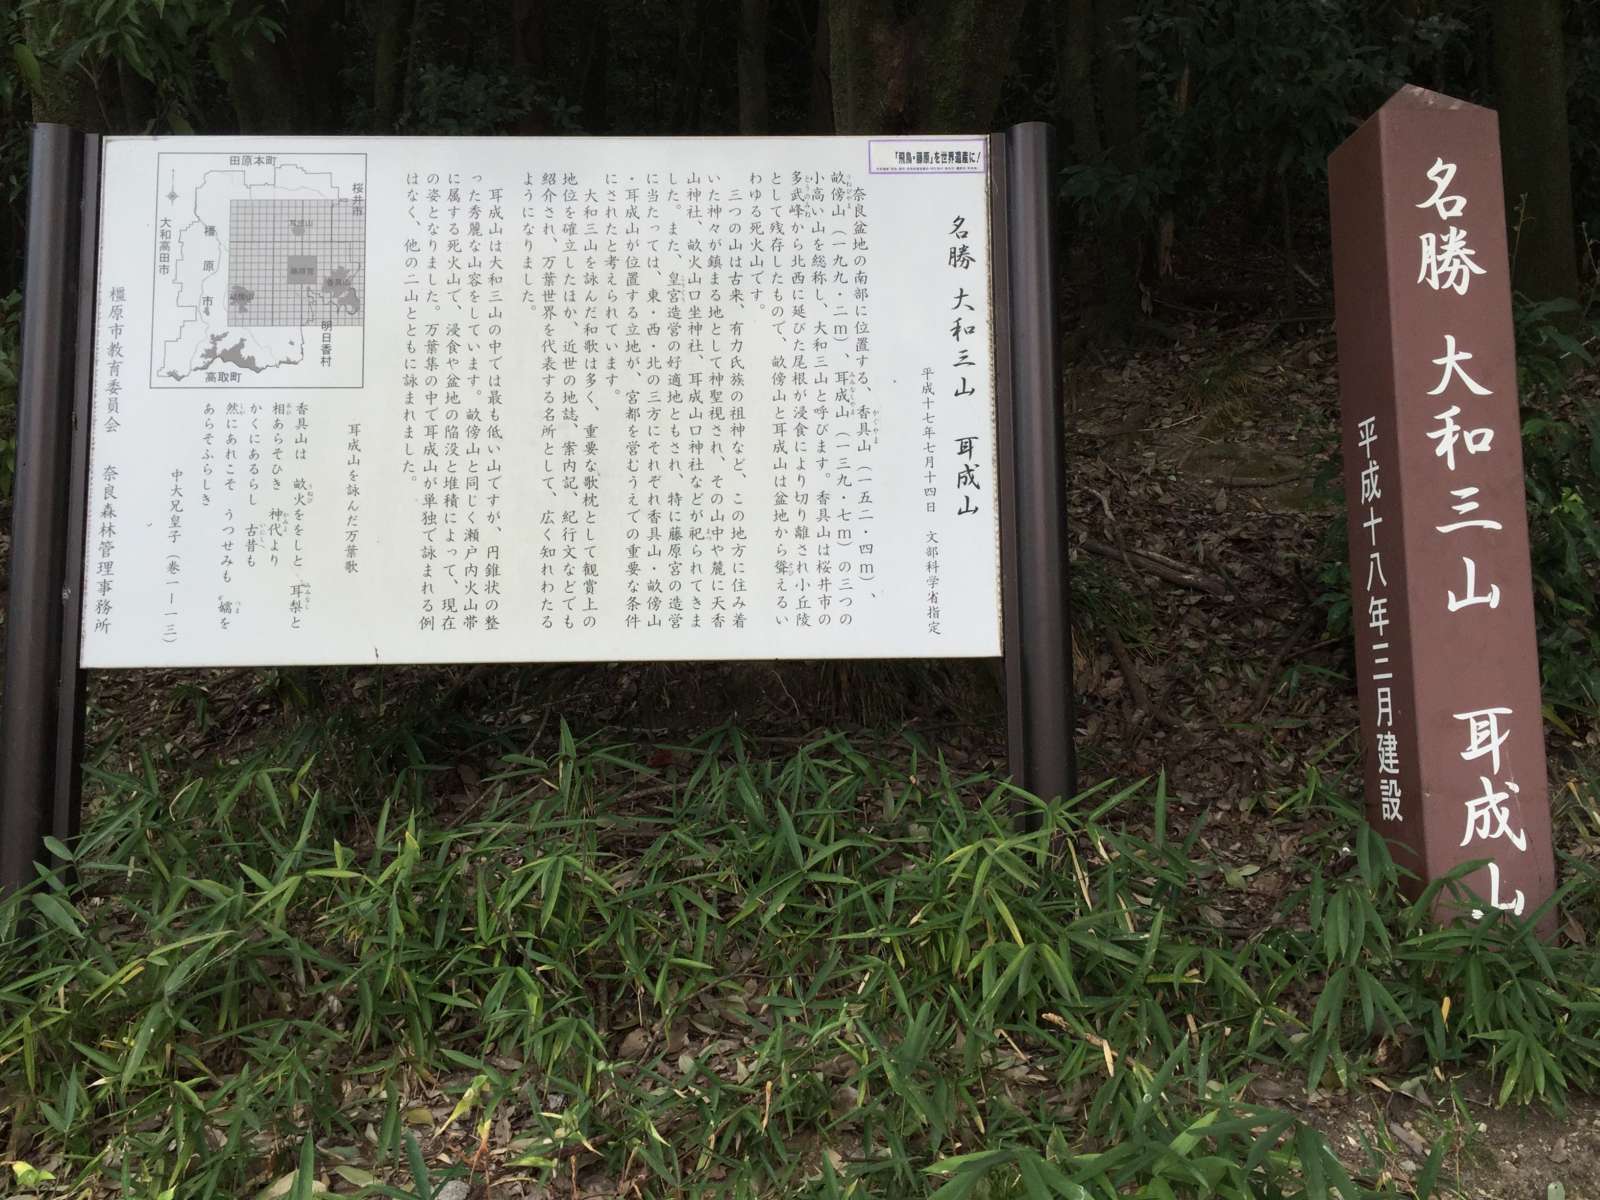 「飛鳥・藤原」を世界遺産に！
名勝 大和三山 耳成山
平成十七年七月十四日 文部科学省指定
奈良盆地の南部に位置する、香具山（一五二・四ｍ）、
畝傍山（一九九・二ｍ）、耳成山（一三九・七ｍ）の三つの
小高い山を総称し、大和三山と呼びます。香具山は桜井市の
多武峰から北西に延びた尾根が浸食により切り離され小丘陵
として残存したもので、畝傍山と耳成山は盆地から聳えるい
わゆる死火山です。
三つの山は古来、有力氏族の祖神など、この地方に住み着
いた神々が鎮まる地として神聖視され、その山中や麓に天香
山神社、畝火山口坐神社、耳成山口神社などが祀られてきま
した。また、皇宮造営の好適地ともされ、特に藤原宮の造営
に当たっては、東・西・北の三方にそれぞれ香具山・畝傍山
・耳成山が位置する立地が、宮都を営むうえでの重要な条件
にされたと考えられています。
大和三山を詠んだ和歌は多く、重要な歌枕として観賞上の
地位を確立したほか、近世の地誌、案内記、紀行文などでも
紹介され、万葉世界を代表する名所として、広く知れわたる
ようになりました。
耳成山は大和三山の中では最も低い山ですが、円錐状の整
った秀麗な山容をしています。畝傍山と同じく瀬戸内火山帯
に属する死火山で、浸食や盆地の陥没と堆積によって、現在
の姿となりました。万葉集の中で耳成山が単独で詠まれる例
はなく、他の二山とともに詠まれました。
耳成山を詠んだ万葉歌
香具山は 畝火ををしと 耳梨と
相あらそひき 神代より
かくにあるらし 古昔も
然にあれこそ うつせみも 嬬を
あらそふらしき
中大兄皇子（巻一ー一三）
橿原市教育委員会 奈良森林管理事務所
田原本町
桜井市
大和高田市
橿原市
耳成山
藤原宮
香具山
畝傍山
明日香村
高取町
名勝 大和三山 耳成山
平成十八年三月建設